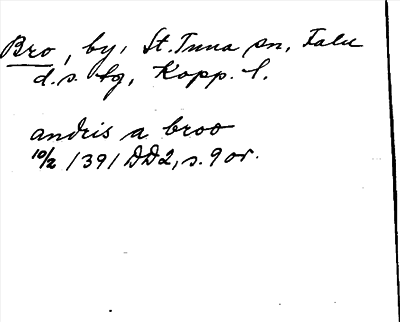 Bro, by, St. Tuna sn, Falu
d.s. tg, Kopp. l.
andris a broo
10/2 1391 DD2, s. 9 or.